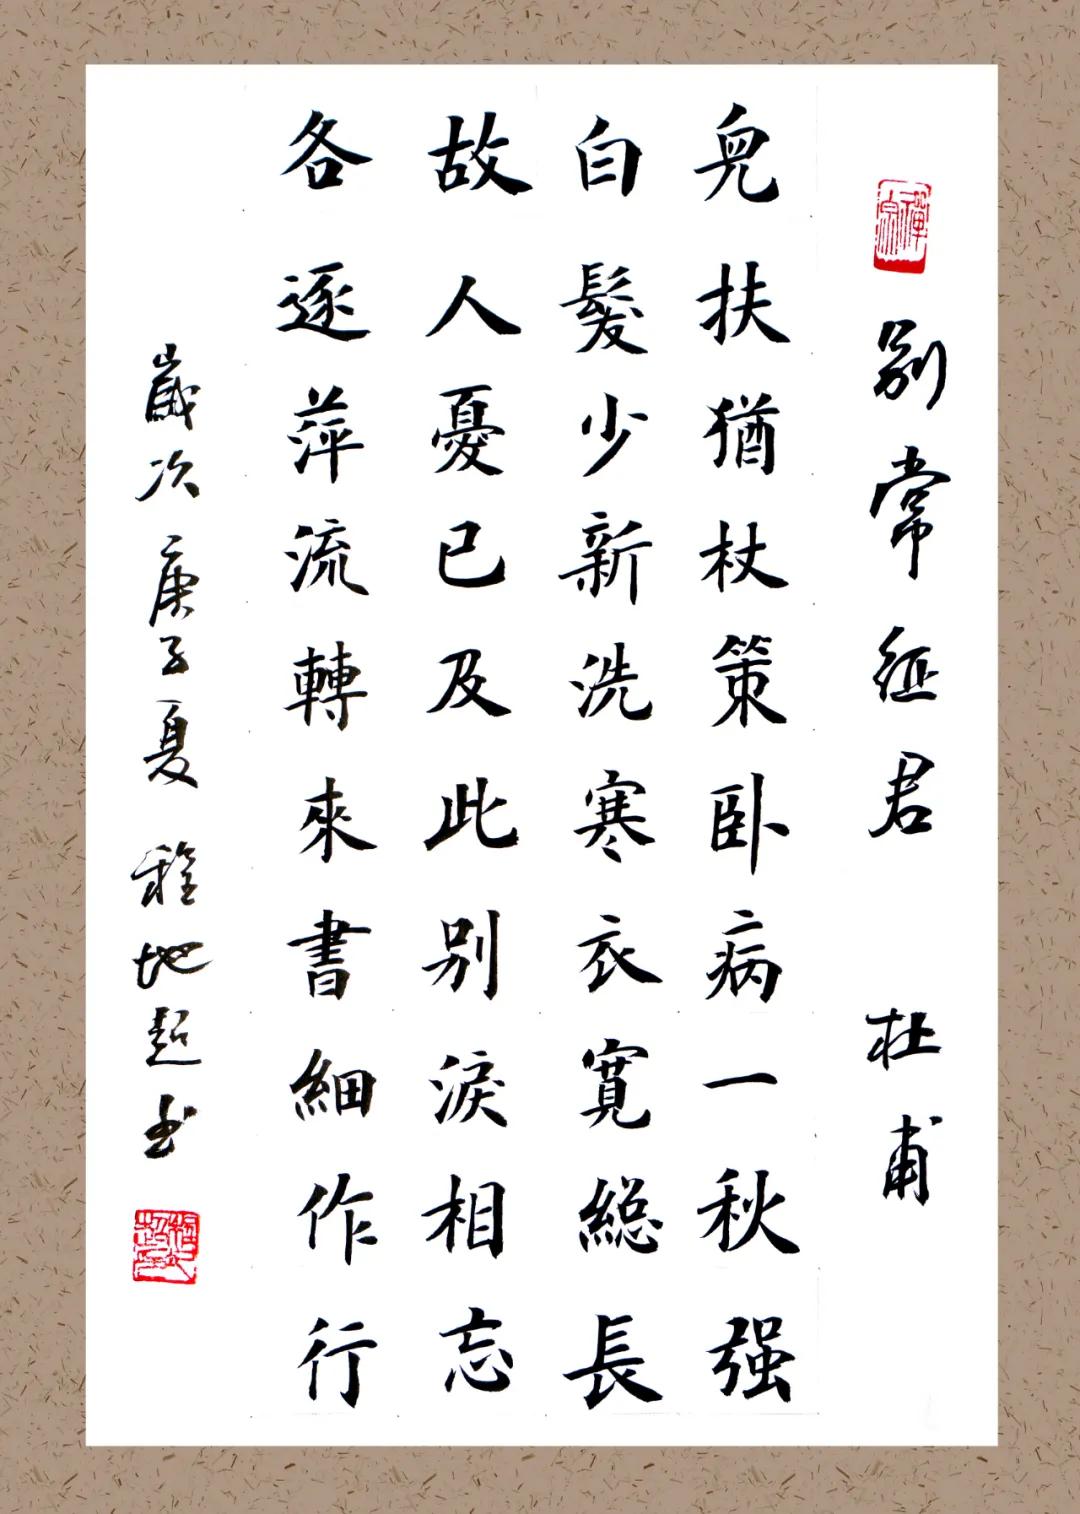 別常征君 杜甫
兒扶猶杖策卧病一秋强
白髮少新洗寒衣寬總長
故人憂已及此別淚相忘
各逐萍流轉來書細作行
歲次庚子夏 程地超书